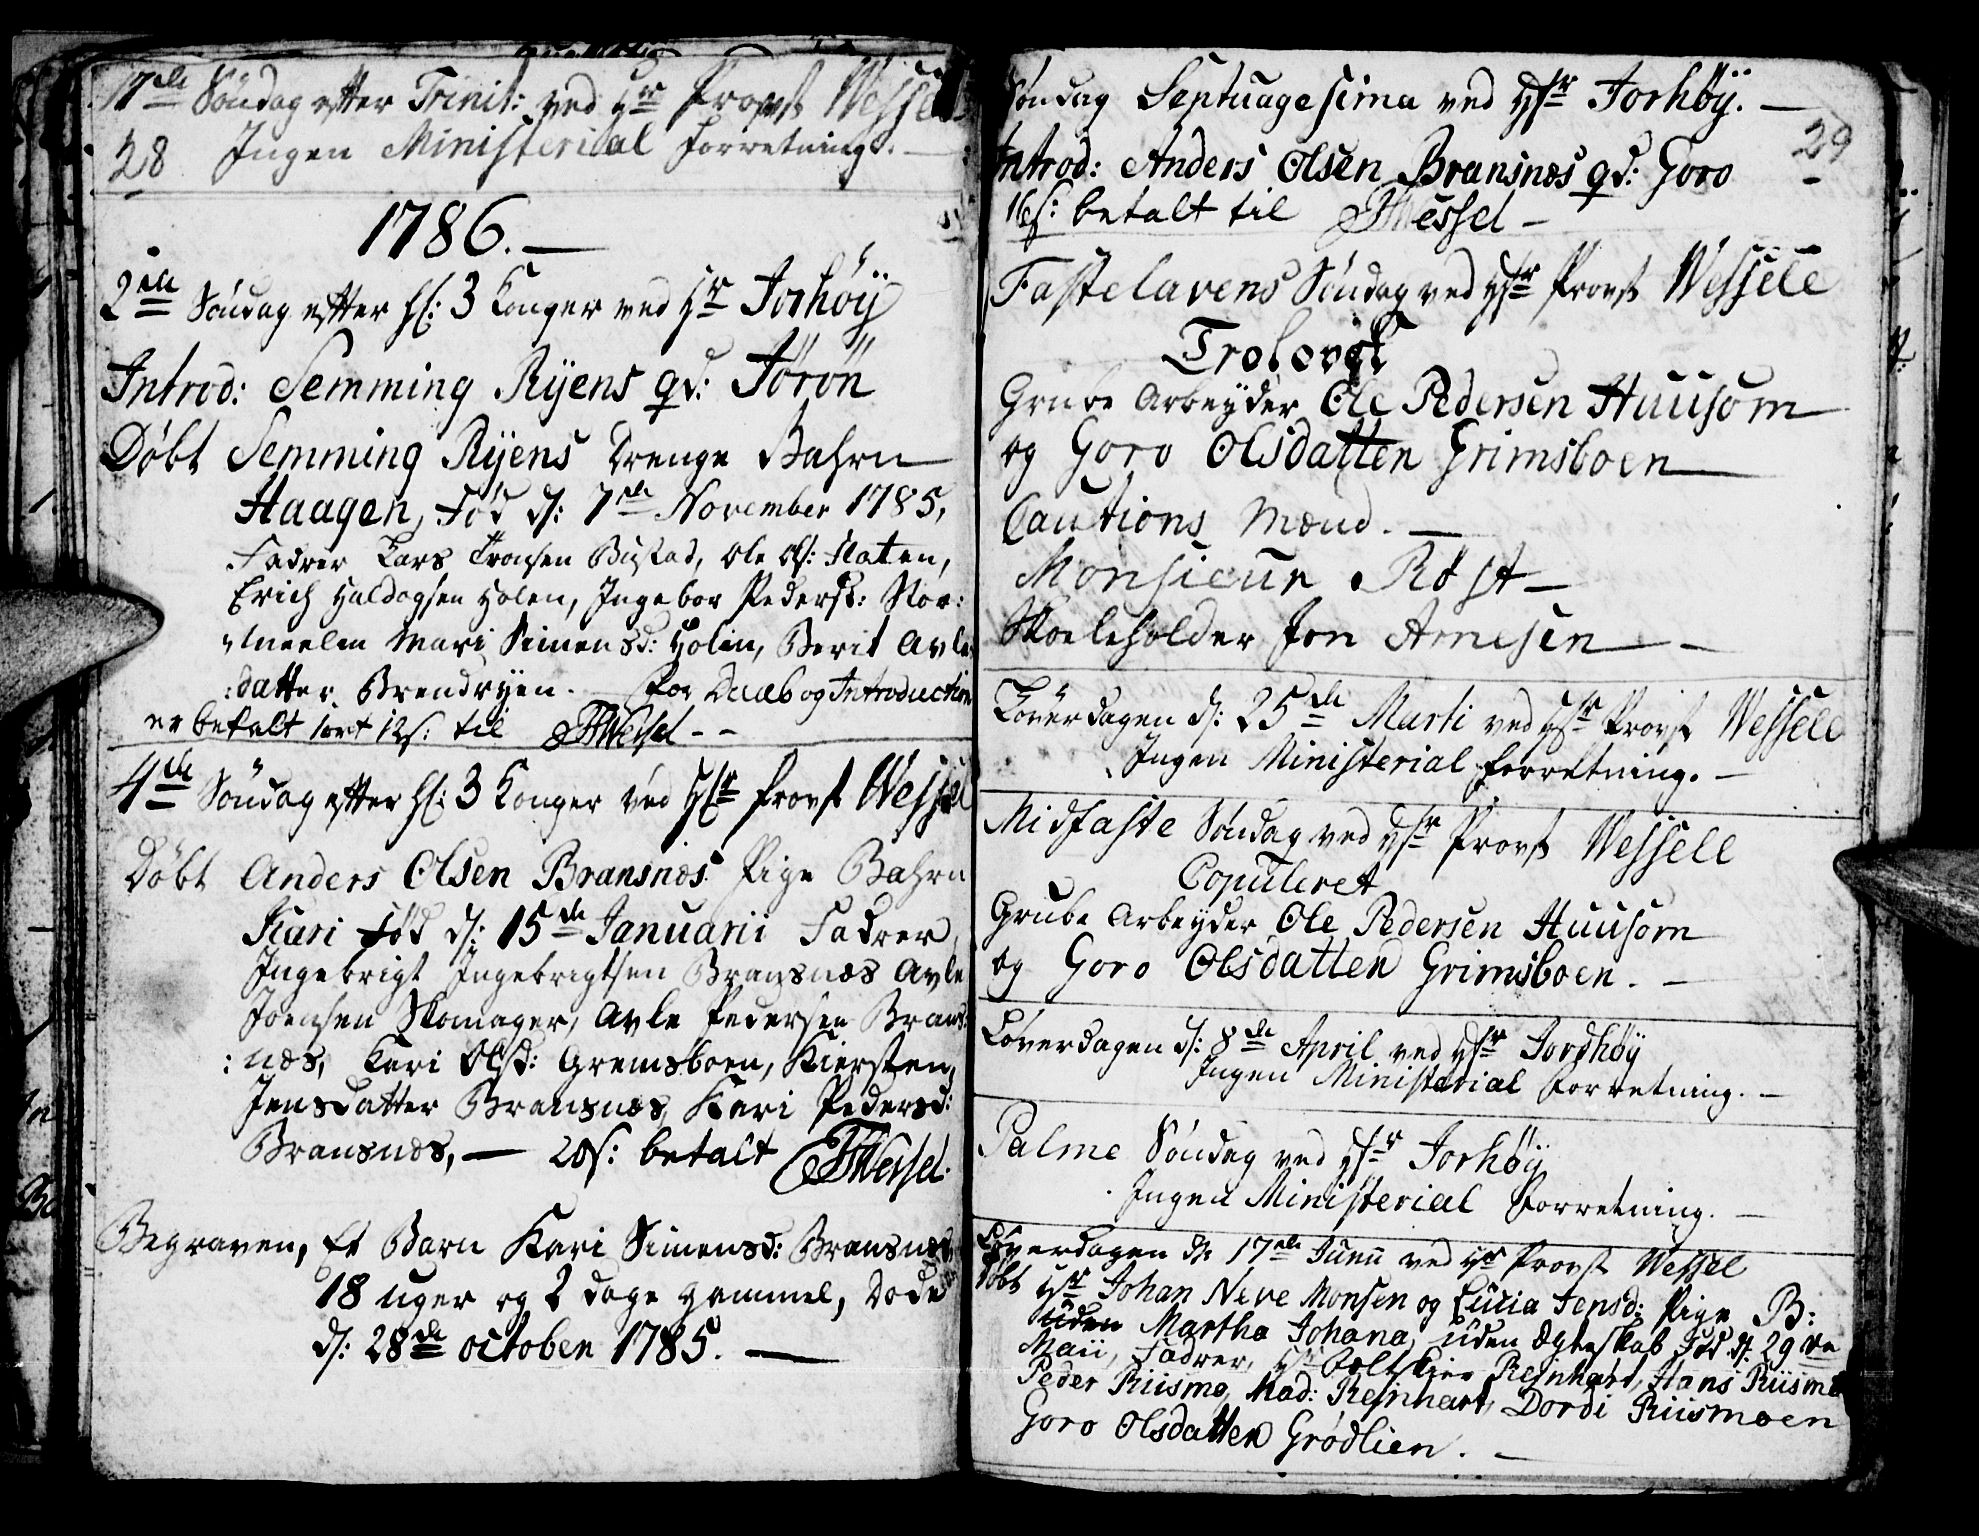 17de Søndag efter Trinit: ved Hr Provst Wessel
28 Ingen Ministerial Forretning. —
1786. —
2den Søndag efter H: 3 Konger ved Hr Jorhøÿ
Introd: Semming Rÿens qd: Jörön
Døbt Semming Rÿens Drenge Bahrn
Haagen, Fød d: 7de November 1785,
Fadrer Lars Tronsen Bustad, Ole Ols: Flaten,
Erich Haldogsen Holen, Ingebor Pedersd: Nor:
:meelen Mari Simensd: Holen, Berit Avle
:datter Brendryen. For Daab og Introduction
er betalt 1ort 12s: til JHWessel - -
4de Søndag efter H: 3 Konger ved Hr Provst Wessel
Døbt Anders Olsen Bransnæs Pige Bahrn
Kari Fød d: 15de Januarii Fadrer,
Ingebrigt Ingebrigtsen Bransnæs Avle
Joensen Skomager, Avle Pedersen Brans:
:næs, Kari Olsd: Gremsboen, Kiersten
Jensdatter Bransnæs, Kari Pedersd:
Bransnæs, — 20s: betalt JHWessel.
Begraven, Et Barn Kari Simensd: Bransnæs
18 uger og 2 dage gammel, Døde
d: 28de october 1785. —
29
Søndag Septuagesima ved Hr Jorhøÿ. —
Introd: Anders Olsen Bransnæs qd: Goro
16s: betalt til JHWessel —
Fastelavens Søndag ved Hr Provst Wessele
Trolovet
Grube Arbeyder Ole Pedersen Huusom
og Goro Olsdatter Grimsboen
Cautions Mænd. —
Monsieur Røst —
Skoleholder Jon Arnesen — -
Løverdagen d: 25de Marti ved Hr Provst Wessele
Ingen Ministerial Forretning. —
Midfaste Søndag ved Hr Provst Wessele
Copuleret
Grube Arbeyder Ole Pedersen Huusom
og Goro Olsdatter Grimsboen. —
Løverdagen d: 8de April ved Hr Jordhøÿ
Ingen Ministerial Forretning. —
Palme Søndag ved Hr Jorhøÿ
Ingen Ministerial Forretning. —
Løverdagen d: 17de Junii ved Hr Provst Wessel
Døbt Hr Johan Neve Monsen og Lucia Jensd: Pige B:
Martha Johana, uden Ægteskab Fød d. 29de
Maii, Fadrer, Hr Feltskier Reinhart, Hans Riismo
Peder Riismo, Mad: Reinhart, Dordi Riismoen
Goro Olsdatter Grødlien. —